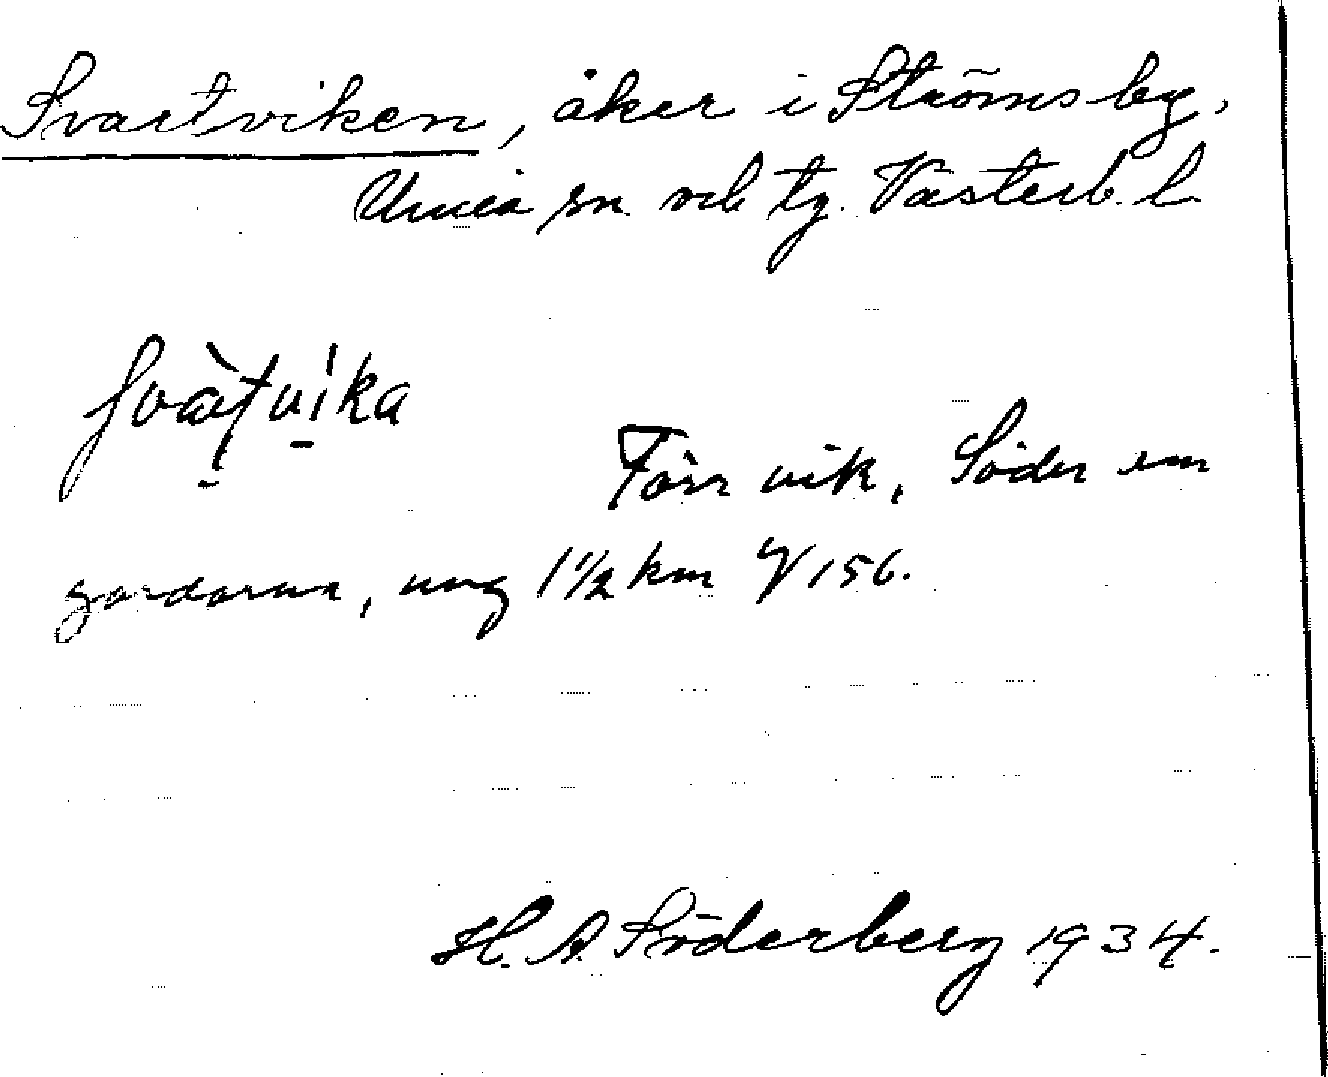 Svartviken, åker i Ströms by,
Umeå sn. och tg. Västerb. l.
Förr vik, Söder om
gårdarna, ung 1 1/2 km 4/156.
H. A Söderberg 1934.